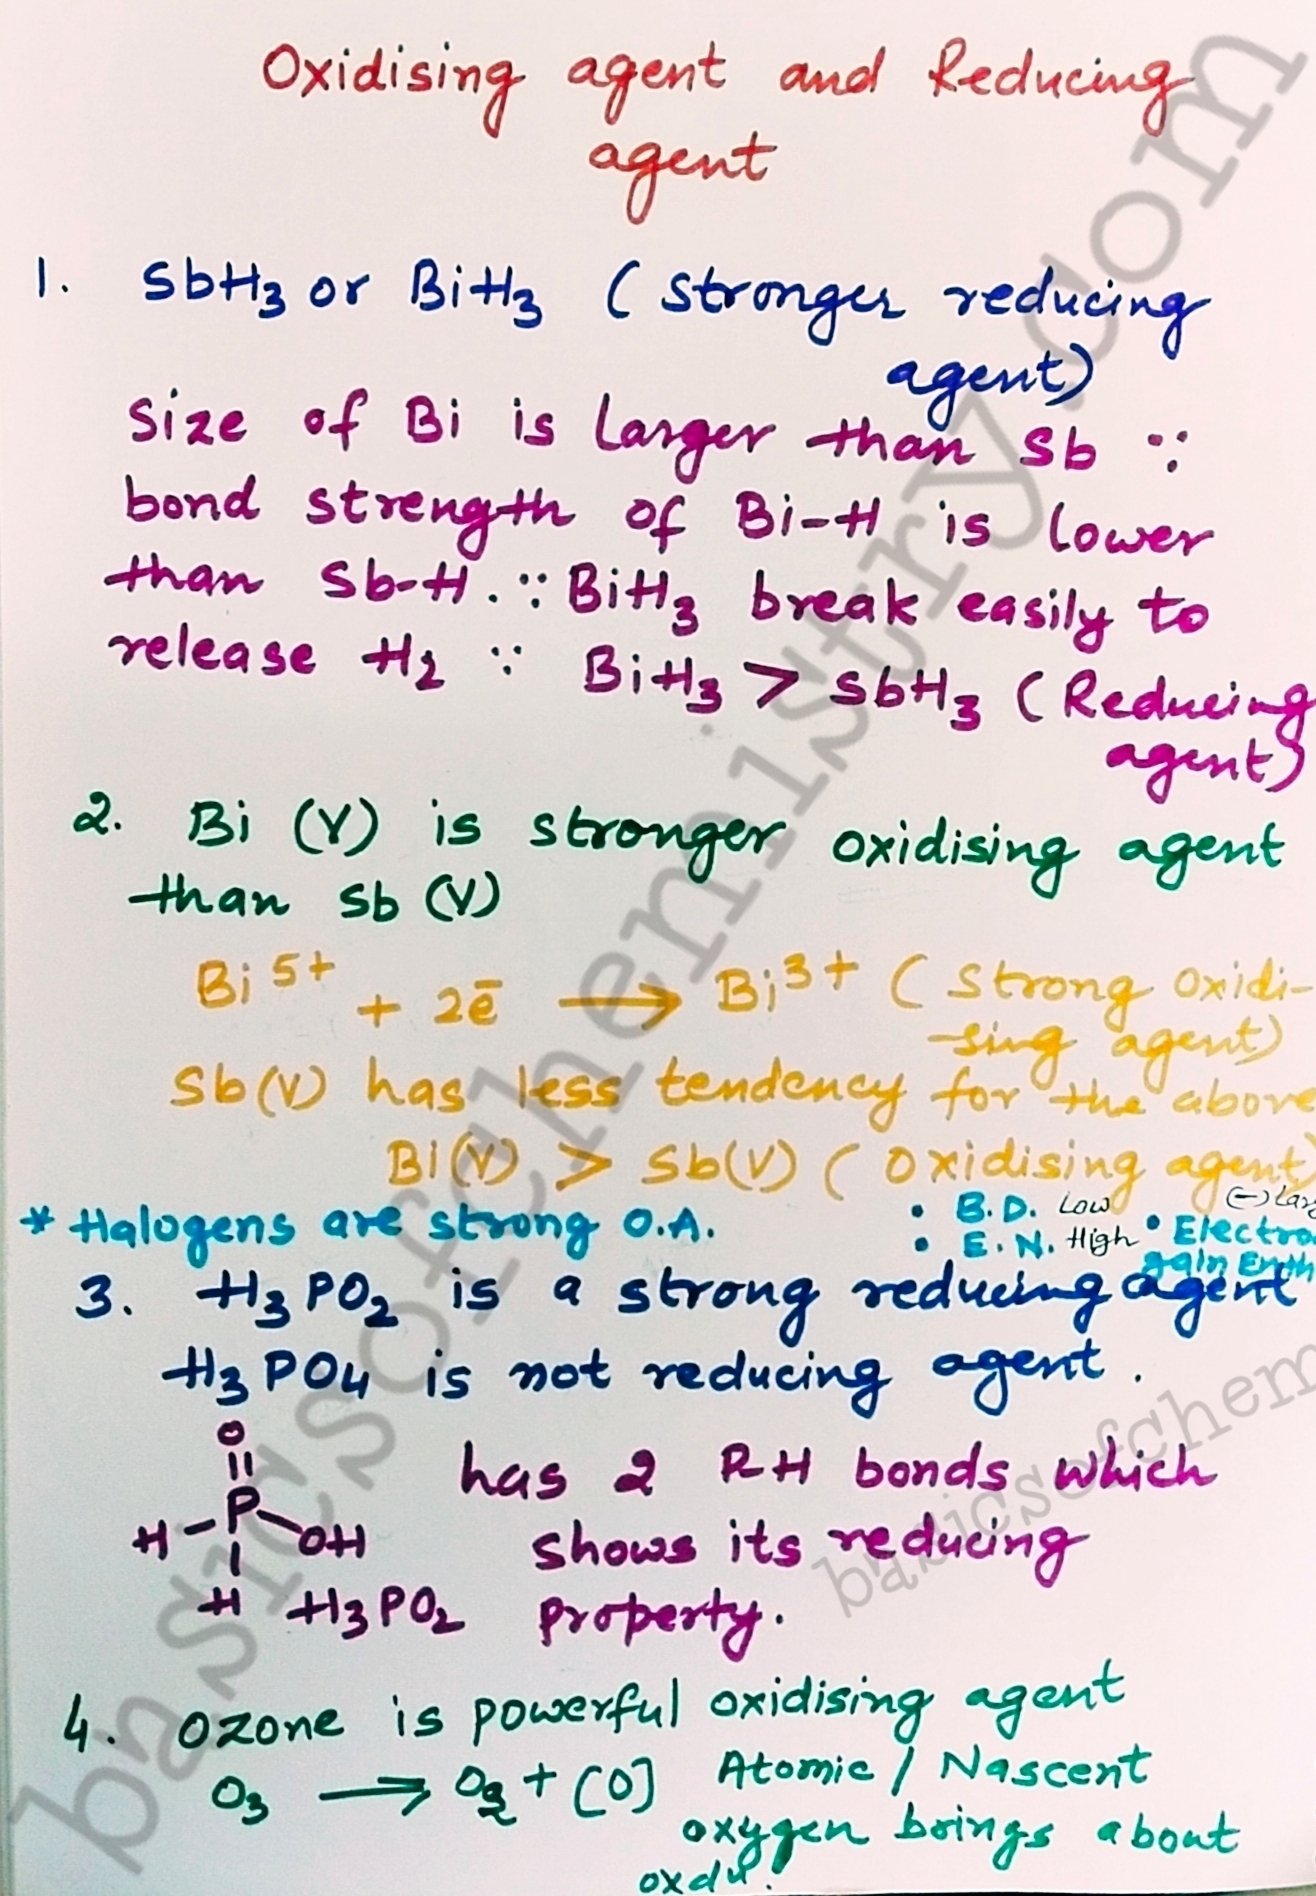 Oxidising agent and Reducing
agent
1. SbH₃ or BiH₃ (stronger reducing
agent)
Size of Bi is larger than Sb ∵
bond strength of Bi-H is lower
than Sb-H. ∵ BiH₃ break easily to
release H₂ ∵ BiH₃ > SbH₃ (Reducing
agent)
2. Bi (V) is stronger oxidising agent
than Sb (V)
Bi⁵⁺ + 2ē ⟶ Bi³⁺ (Strong oxidi-
-sing agent)
Sb(V) has less tendency for the above
Bi(V) > Sb(V) (Oxidising agent)
* Halogens are strong O.A. • B.D. Low
• E.N. High • Electro
gain Enth
3. H₃PO₂ is a strong reducing agent
H₃PO₄ is not reducing agent.
O
||
P
H OH
H H₃PO₂
has 2 P-H bonds which
shows its reducing
property.
4. Ozone is powerful oxidising agent
O₃ ⟶ O₂ + [O] Atomic / Nascent
oxygen brings about
oxdn.
basicsofchemistry.com
basicsofchem